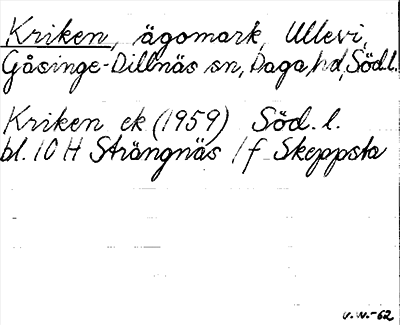 Kriken, ägomark, Ullevi,
Gåsinge-Dillnäs sn, Daga hd, Södl.
Kriken ek (1959) Söd. l.
bl. 10 H Strängnäs / f Skeppsta
V.W.-62